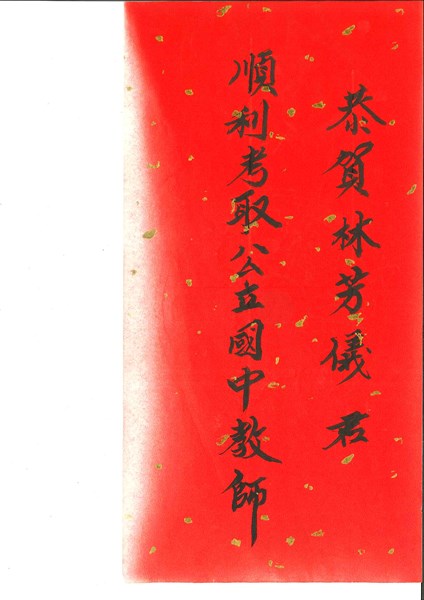 恭賀林芳儀君
順利考取公立國中教師